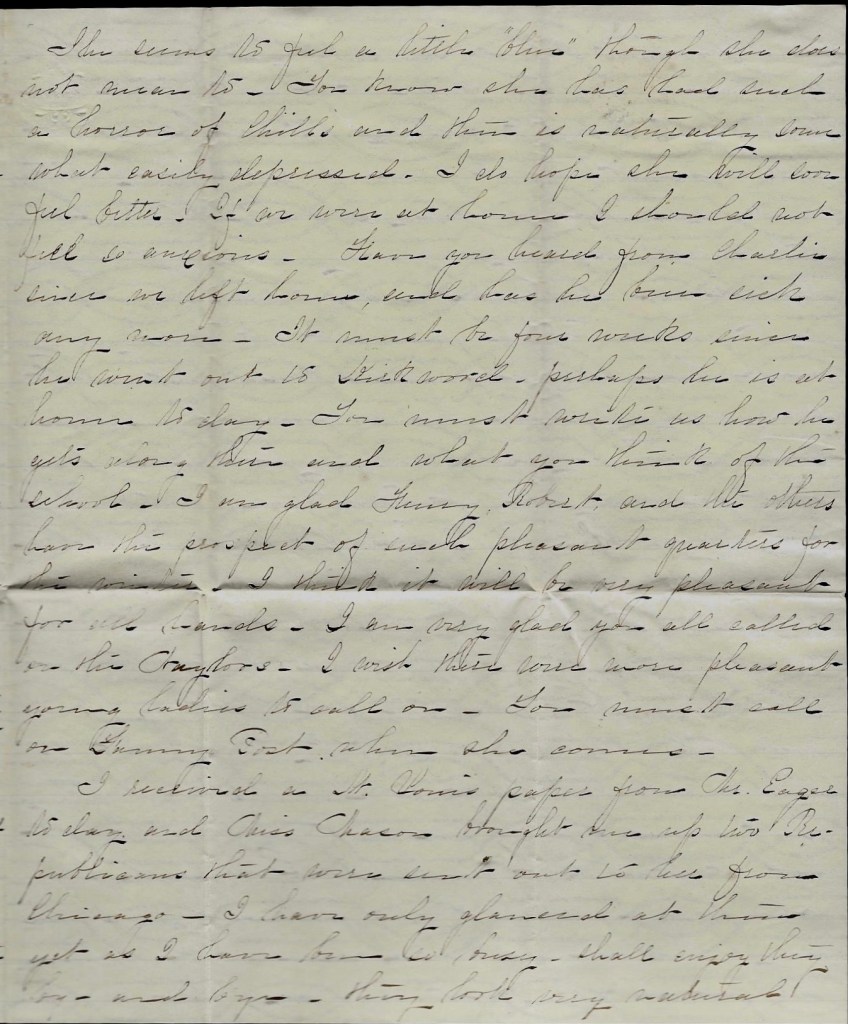 She seems to feel a little "blue" though she does
not mean to - You know she has had such
a horror of Chills and then is naturally some
what easily depressed - I do hope she will soon
feel better - If we were at home I should not
feel so anxious - Have you heard from Charlie
since we left home, and has he been sick
any more - It must be four weeks since
he went out to Kirkwood - perhaps he is at
home to day - You must write us how he
gets along there and what you think of the
school - I am glad Robert, and the others
have the prospect of such pleasant quarters for
the winter - I think it will be very pleasant
for all hands - I am very glad you all called
on the Taylors - I wish there were more pleasant
young ladies to call on - You must call
on Fanny Post when she comes -
I received a St. Louis paper from Mr.
to day and Miss brought me up two Re-
publicans that were sent out to her from
Chicago - I have only glanced at them
yet as I have been so busy - shall enjoy them
by - and bye - they look very natural